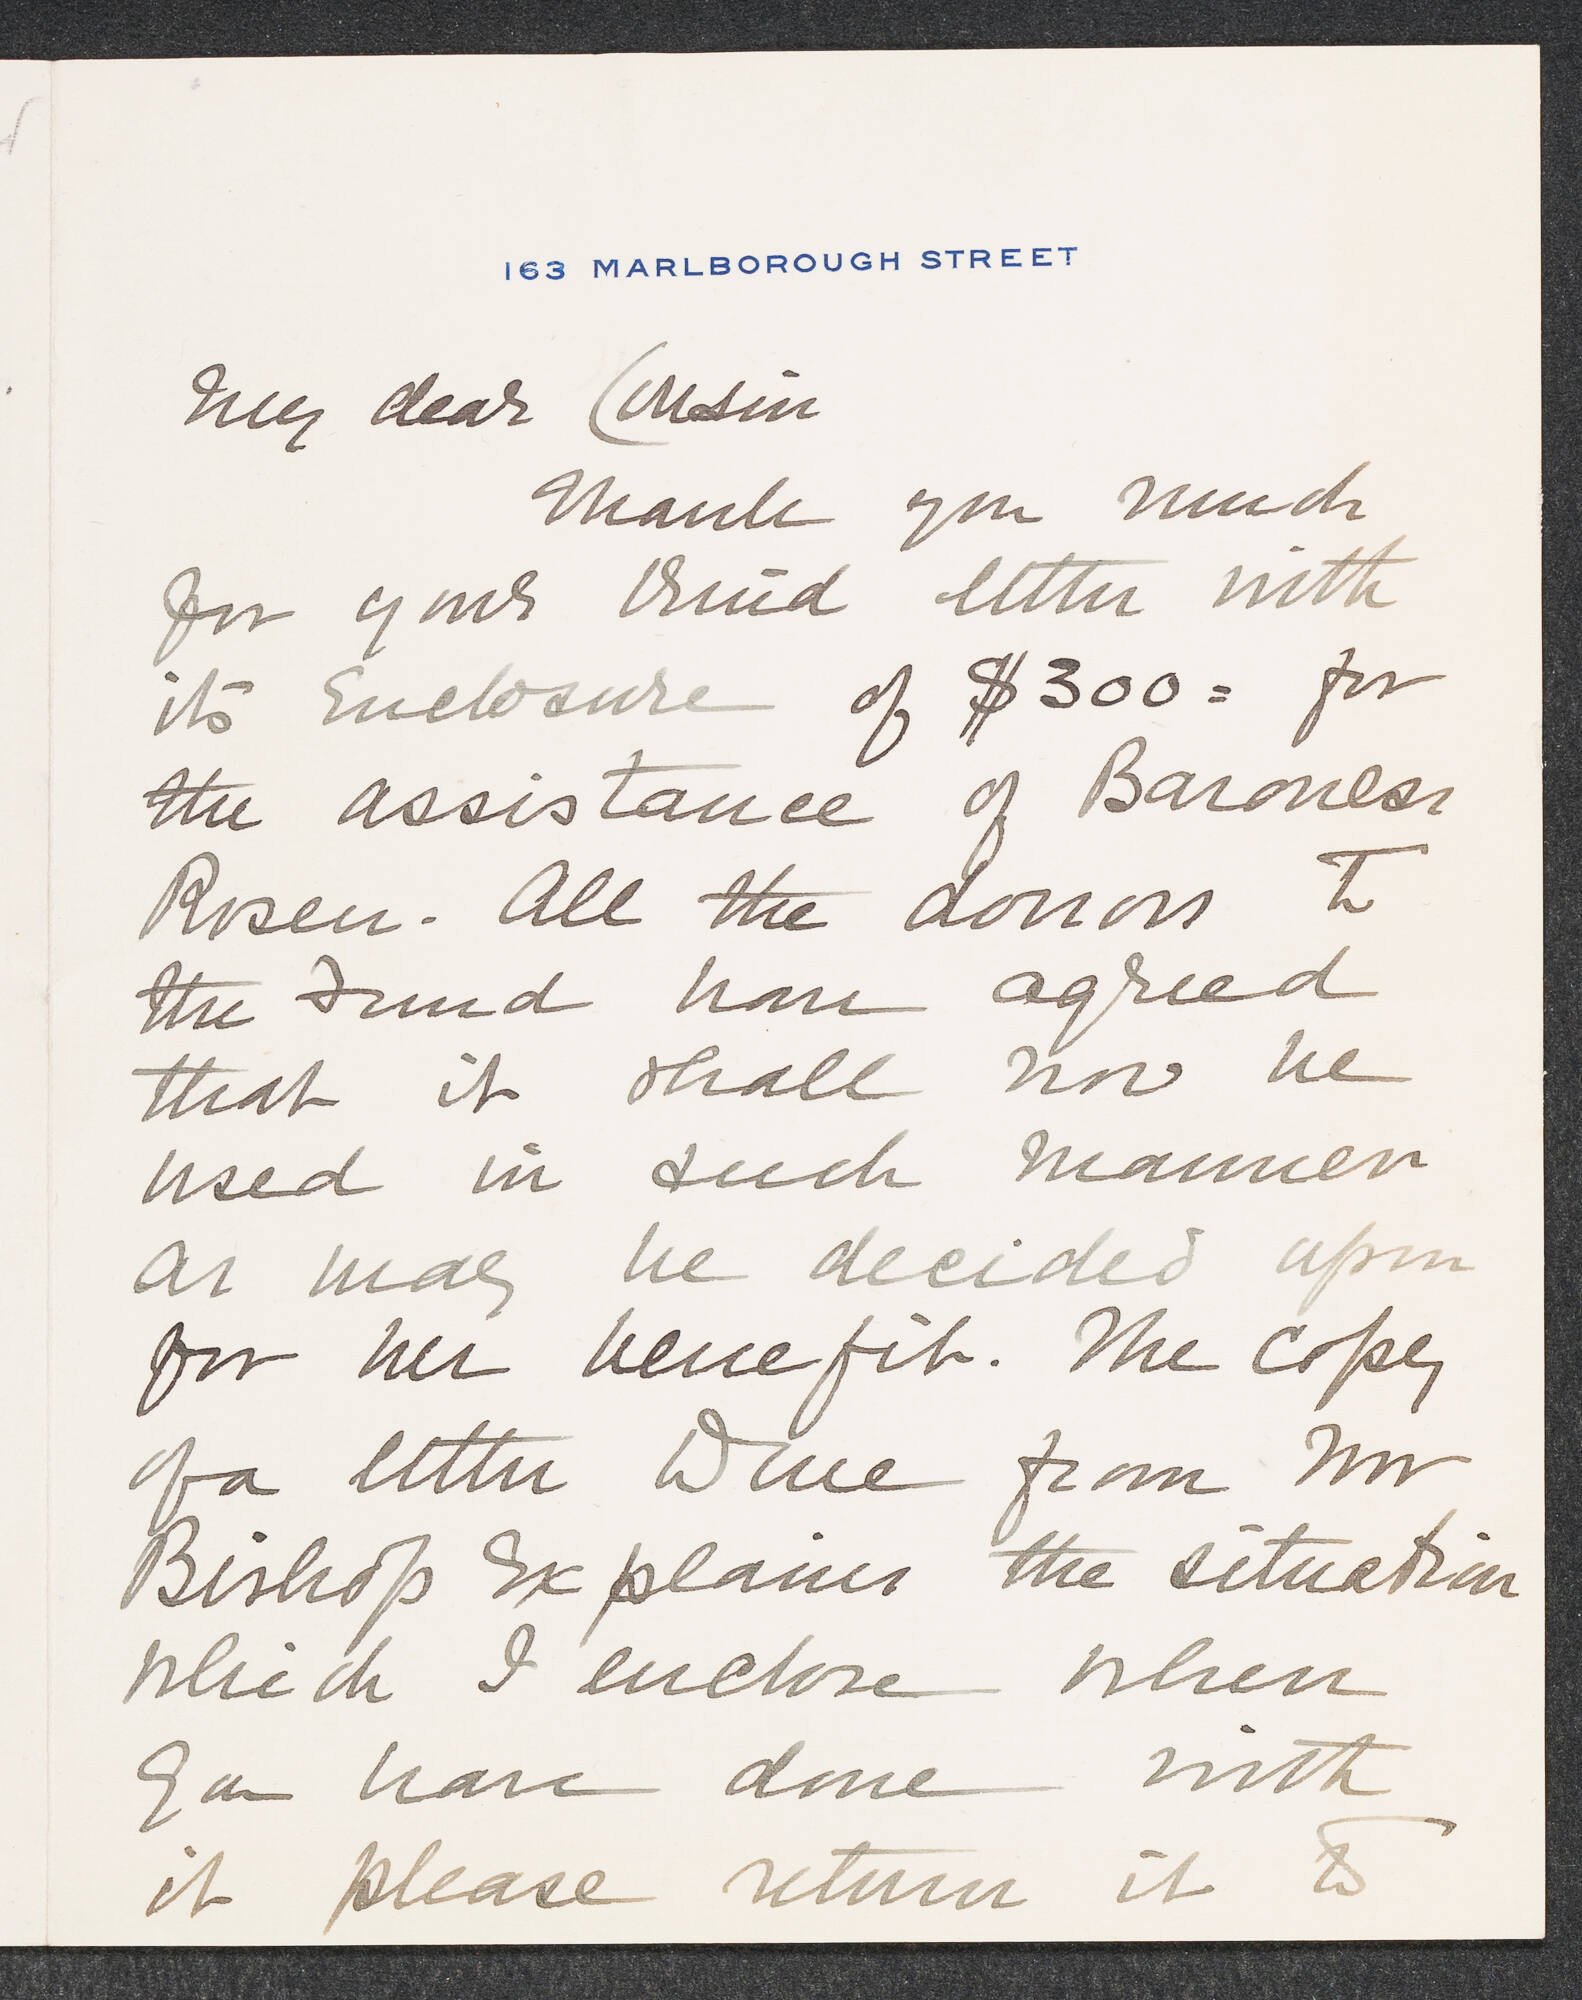 163 MARLBOROUGH STREET
My dear Cousin
Thank you much
for your kind letter with
its Enclosure of $300= for
the assistance of Baroness
Rosen. All the donors to
the Fund have agreed
that it shall now be
used in such manner
as may be decided upon
for her benefit. The copy
of a letter from Mr
Bishop Explains the situation
which I enclose when
you have done with
it please return it to